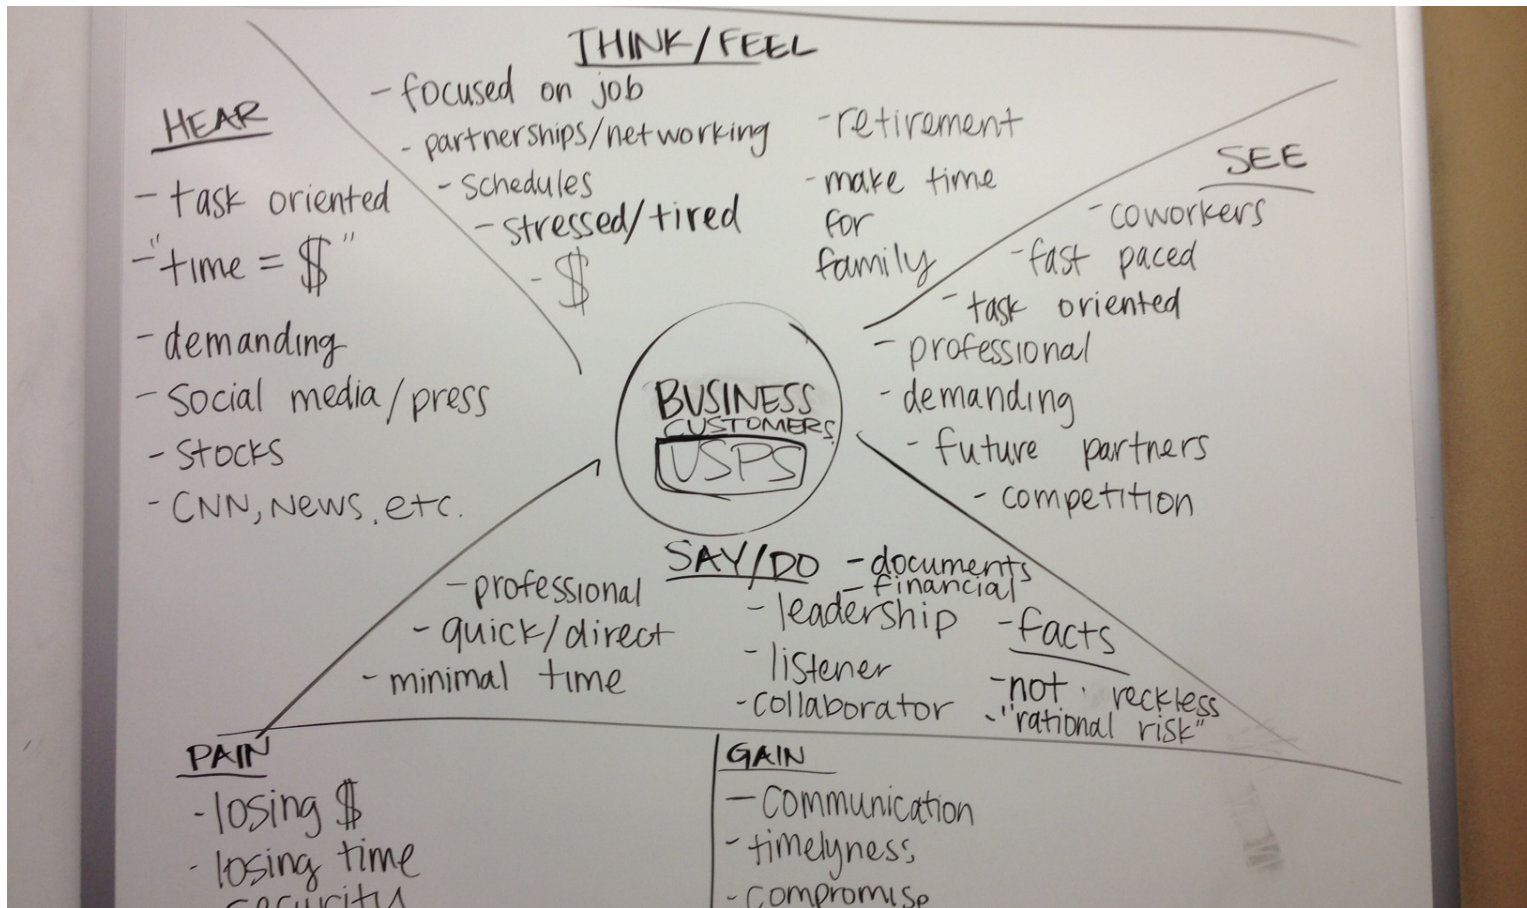 THINK/FEEL
- focused on job
- partnerships/networking
- schedules
- stressed/tired
- $
- retirement
- make time
for
family
HEAR
- task oriented
- "time = $"
- demanding
- Social media/press
- Stocks
- CNN, News, etc.
SEE
- coworkers
- fast paced
- task oriented
- professional
- demanding
- future partners
- competition
BUSINESS
CUSTOMERS
USPS
SAY/DO
- professional
- quick/direct
- minimal time
- documents
- financial
- leadership
- listener
- collaborator
- facts
- not reckless
- "rational risk"
PAIN
- losing $
- losing time
security
GAIN
- communication
- timelyness
- compromise